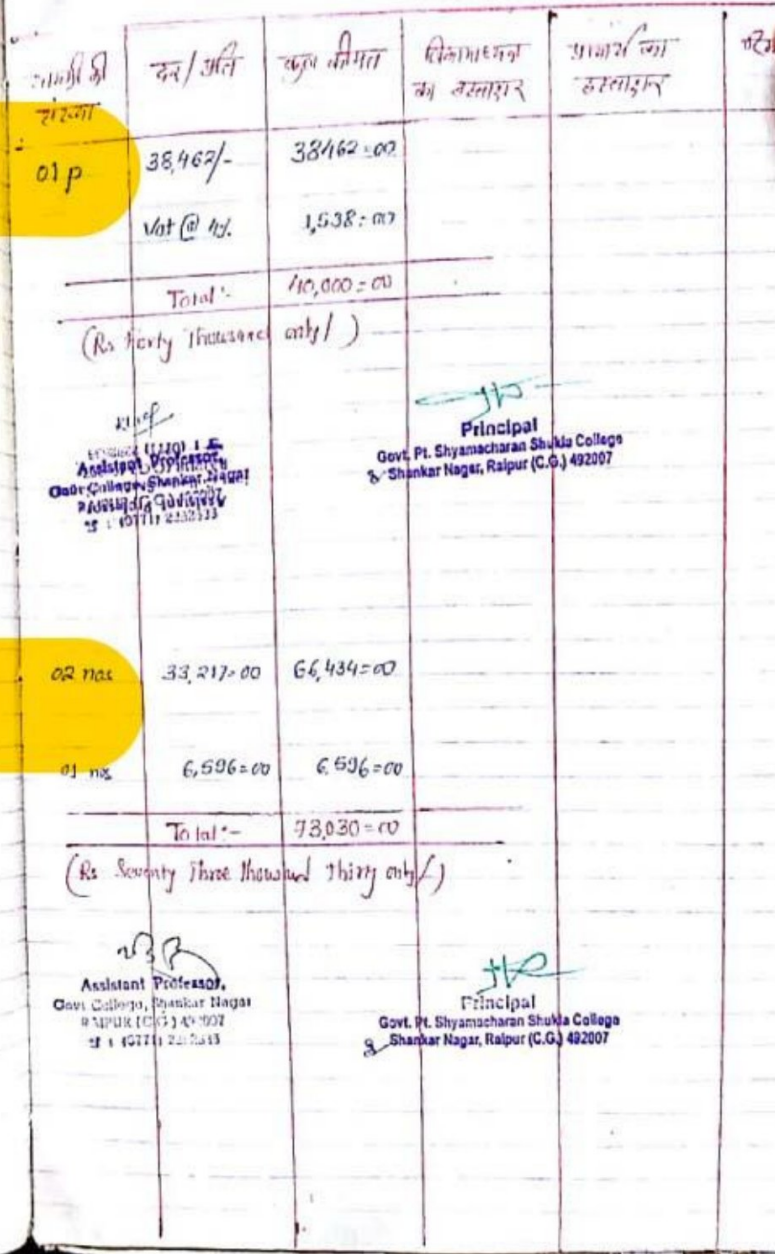 सामग्री की दर/प्रति कुल कीमत विभागाध्यक्ष का हस्ताक्षर प्राचार्य का हस्ताक्षर
संख्या
01 p 38,462/- 38462=00
Vat @ 4% 1,538=00
Total:- 40,000=00
(Rs Forty Thousand only/)
Principal
Govt. Pt. Shyamacharan Shukla College
Shankar Nagar, Raipur (C.G.) 492007
Assistant Professor,
Govt College, Shankar Nagar
02 nos 33,217=00 66,434=00
01 nos 6,596=00 6,596=00
Total:- 73,030=00
(Rs Seventy Three Thousand Thirty only/)
Assistant Professor,
Govt College, Shankar Nagar
RAIPUR (C.G.) 492007
Principal
Govt. Pt. Shyamacharan Shukla College
Shankar Nagar, Raipur (C.G.) 492007